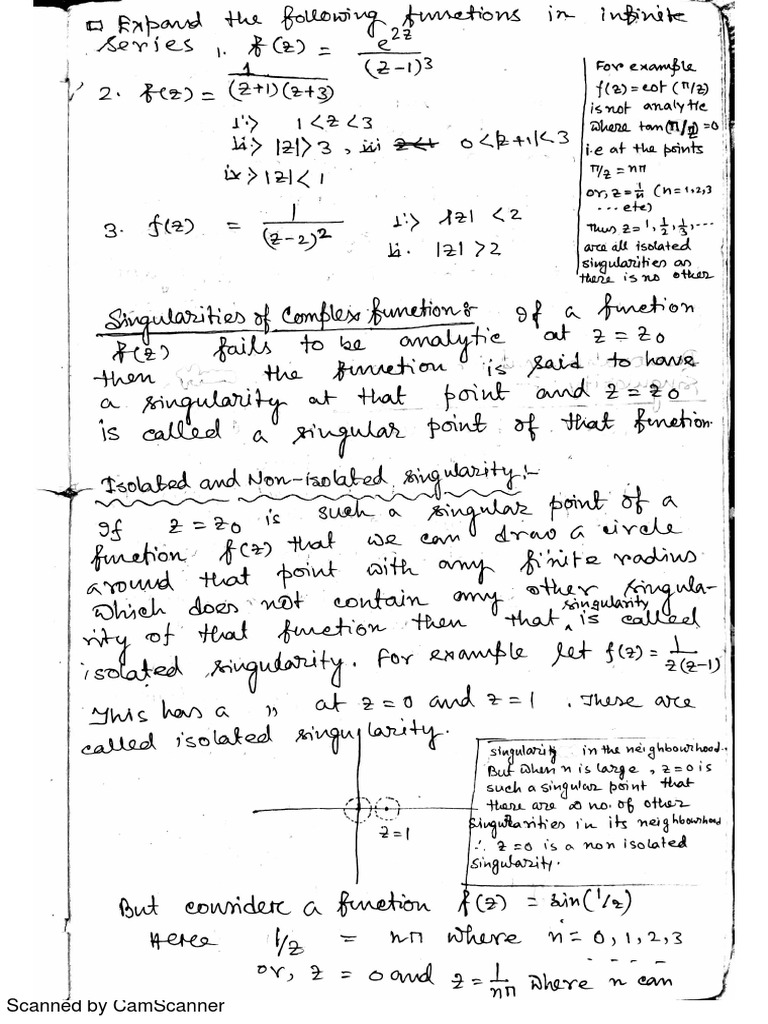 □ Expand the following functions in infinite
series 1. f(z) = e^{2z}/(z-1)^3
2. f(z) = 1/(z+1)(z+3)
i> 1 < z < 3
ii> |z| > 3 , iii 0 < |z+1| < 3
iv> |z| < 1
3. f(z) = 1/(z-2)^2 i> |z| < 2
ii. |z| > 2
For example
f(z) = cot (π/z)
is not analytic
where tan(π/z) = 0
i.e at the points
π/z = nπ
or, z = 1/n (n = 1,2,3
... etc)
Thus z = 1, 1/2, 1/3, ...
are all isolated
singularities as
there is no other
Singularities of Complex functions If a function
f(z) fails to be analytic at z = z0
then the function is said to have
a singularity at that point and z = z0
is called a singular point of that function.
Isolated and Non-isolated singularity:-
If z = z0 is such a singular point of a
function f(z) that we can draw a circle
around that point with any finite radius
which does not contain any other singula-
rity of that function then that singularity is called
isolated singularity. For example let f(z) = 1/z(z-1)
This has a " at z = 0 and z = 1 . These are
called isolated singularity.
z = 1
singularity in the neighbourhood.
But when n is large, z = 0 is
such a singular point that
there are ∞ no. of other
singularities in its neighbourhood
∴ z = 0 is a non isolated
singularity.
But consider a function f(z) = sin(1/z)
Here 1/z = nπ where n = 0, 1, 2, 3
- - - -
or, z = 0 and z = 1/nπ where n can
Scanned by CamScanner